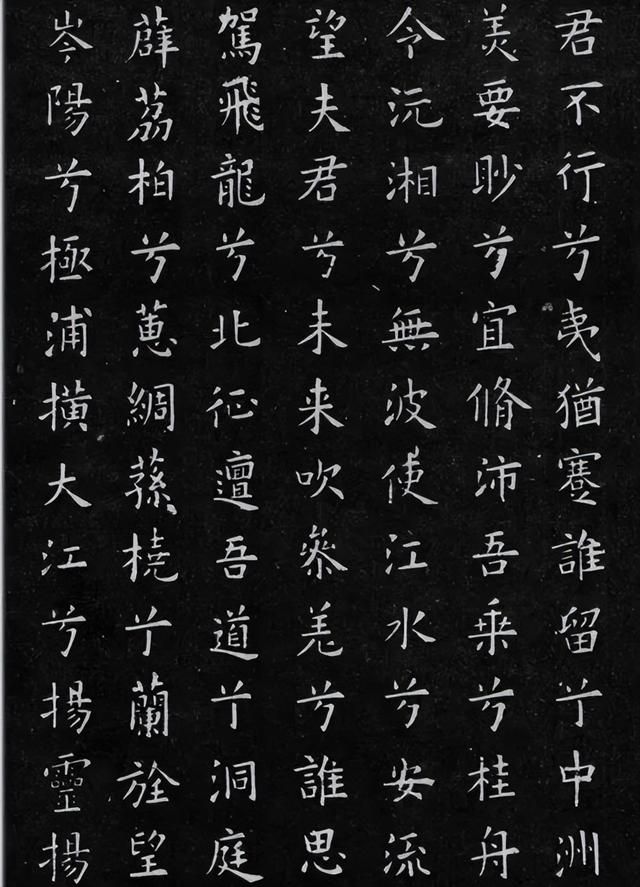 君不行兮夷猶蹇誰留兮中洲
美要眇兮宜脩沛吾乘兮桂舟
令沅湘兮無波使江水兮安流
望夫君兮未来吹參差兮誰思
駕飛龍兮北征邅吾道兮洞庭
薜荔柏兮蕙綢蓀橈兮蘭旌望
岑陽兮極浦橫大江兮揚靈揚